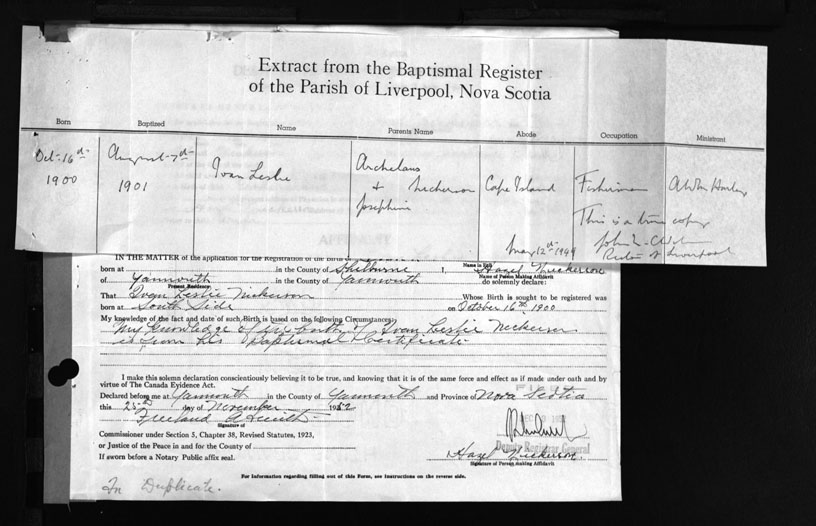 Extract from the Baptismal Register
of the Parish of Liverpool, Nova Scotia
Born Baptized Name Parents Name Abode Occupation Ministrant
Oct-16th 1900 August-7th 1901 Ivan Leslie Archelaus + Josephine Nickerson Cape Island Fisherman
This is a true copy
May 12th 1944
Rector of Liverpool
IN THE MATTER of the application for the Registration of the Birth
born at in the County of Shelburne I, Hazel Nickerson
Name in Full
Name of Person Making Affidavit
of Yarmouth in the County of Yarmouth do solemnly declare:
Present Residence
That Ivan Leslie Nickerson Whose Birth is sought to be registered was
born at South Side on October 16th, 1900
My knowledge of the fact and date of such Birth is based on the following Circumstances:
My knowledge of the birth of Ivan Leslie Nickerson
is from his Baptismal Certificate
I make this solemn declaration conscientiously believing it to be true, and knowing that it is of the same force and effect as if made under oath and by
virtue of The Canada Evidence Act.
Declared before me at Yarmouth in the County of Yarmouth and Province of Nova Scotia
this 25th day of November 1952
Signature of
Commissioner under Section 5, Chapter 38, Revised Statutes, 1923,
Deputy Registrar General
or Justice of the Peace in and for the County of
If sworn before a Notary Public affix seal.
Hazel Nickerson
Signature of Person Making Affidavit
For Information regarding filling out of this Form, see Instructions on the reverse side.
In Duplicate.